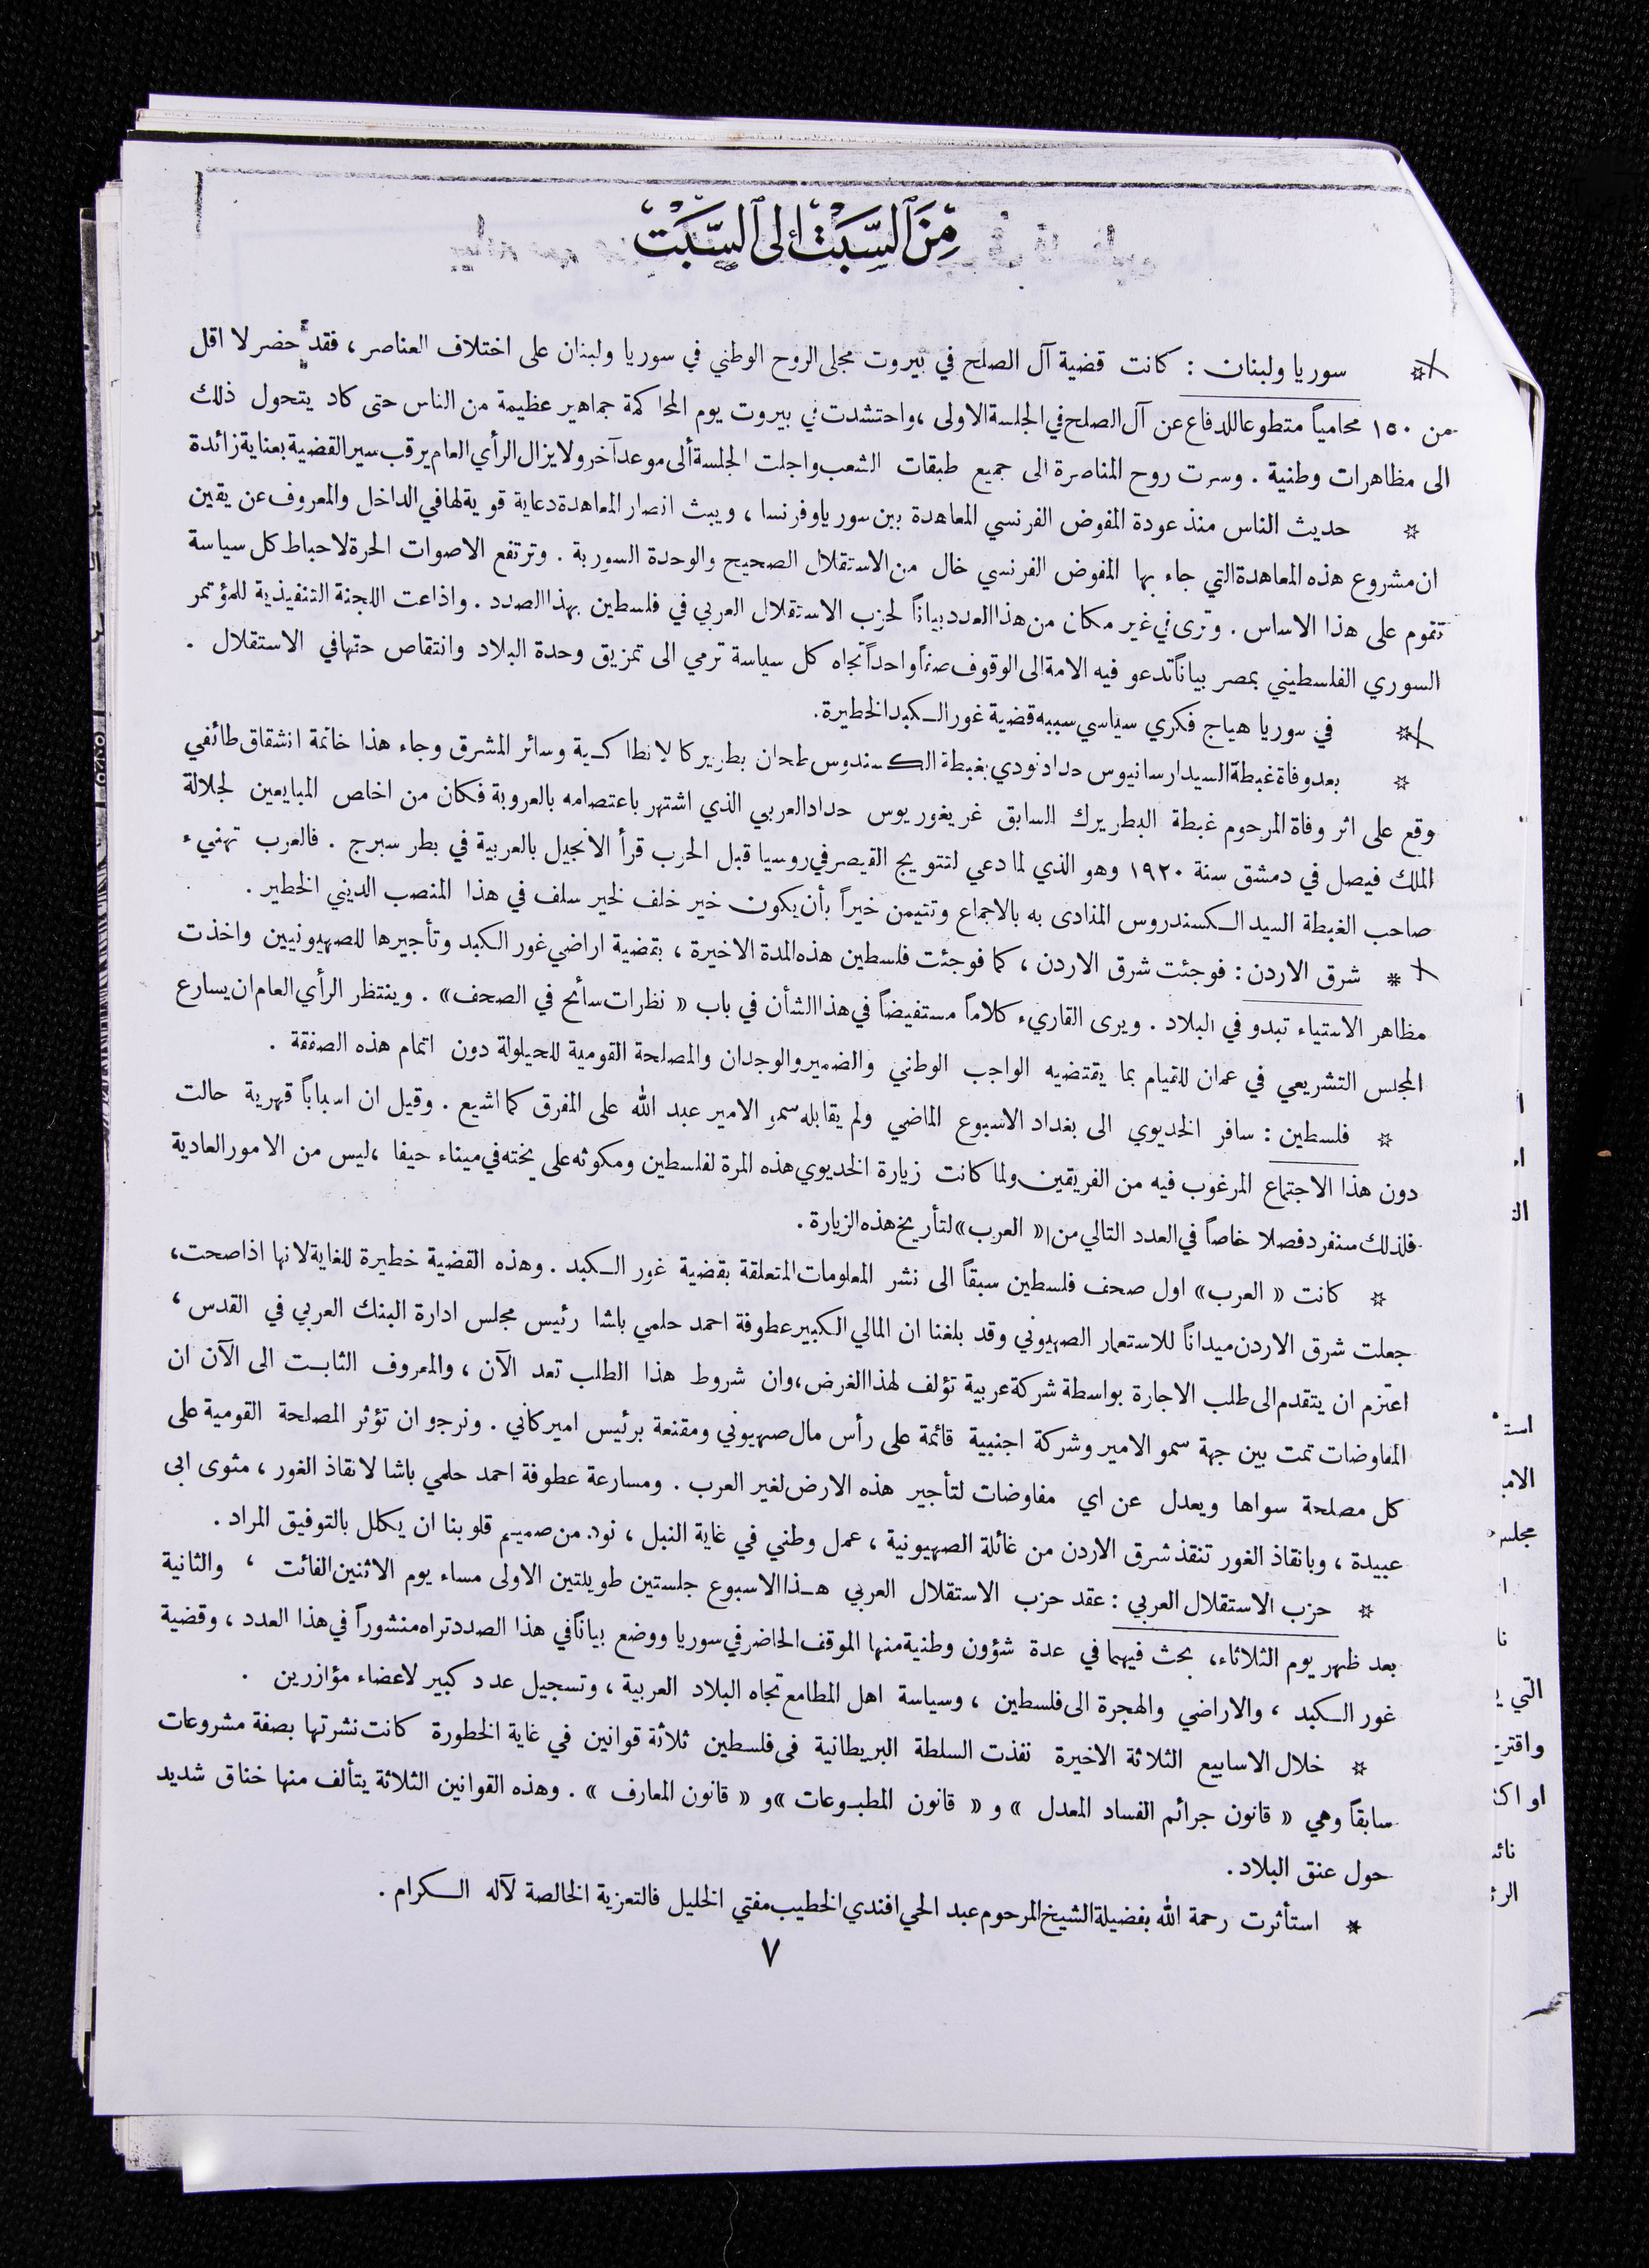 مِنَ السَّبْتِ إلى السَّبْت
☼ سوريا ولبنان : كانت قضية آل الصلح في بيروت مجلى الروح الوطني في سوريا ولبنان على اختلاف العناصر ، فقد حضر لا اقل
من ١٥٠ محامياً متطوعا للدفاع عن آل الصلح في الجلسة الاولى ، واحتشدت في بيروت يوم المحاكمة جماهير عظيمة من الناس حتى كاد يتحول ذلك
الى مظاهرات وطنية . وسرت روح المناصرة الى جميع طبقات الشعب واجلت الجلسة ألى موعد آخر ولا يزال الرأي العام يرقب سير القضية بعناية زائدة
☼ حديث الناس منذ عودة المفوض الفرنسي المعاهدة بين سوريا وفرنسا ، ويبث انصار المعاهدة دعاية قوية لها في الداخل والمعروف عن يقين
ان مشروع هذه المعاهدة التي جاء بها المفوض الفرنسي خال من الاستقلال الصحيح والوحدة السورية . وترتفع الاصوات الحرة لاحباط كل سياسة
تقوم على هذا الاساس . وترى في غير مكان من هذا العدد بياناً لحزب الاستقلال العربي في فلسطين بهذا الصدد . واذاعت اللجنة التنفيذية للمؤتمر
السوري الفلسطيني بمصر بياناً تدعو فيه الامة الى الوقوف صفاً واحداً تجاه كل سياسة ترمي الى تمزيق وحدة البلاد وانتقاص حقها في الاستقلال .
☼ في سوريا هياج فكري سياسي سببه قضية غور الكبد الخطيرة .
☼ بعد وفاة غبطة السيد ارسانيوس حداد نودي بغبطة الكسندوس طحان بطريركا لانطاكية وسائر المشرق وجاء هذا خاتمة انشقاق طائفي
وقع على اثر وفاة المرحوم غبطة البطريرك السابق غريغوريوس حداد العربي الذي اشتهر باعتصامه بالعروبة فكان من اخلص المبايعين لجلالة
الملك فيصل في دمشق سنة ١٩٢٠ وهو الذي لما دعي لتتويج القيصر في روسيا قبل الحرب قرأ الانجيل بالعربية في بطر سبرج . فالعرب تهنيء
صاحب الغبطة السيد الكسندروس المنادى به بالاجماع وتتيمن خيراً بأن يكون خير خلف لخير سلف في هذا المنصب الديني الخطير .
* شرق الاردن : فوجئت شرق الاردن ، كما فوجئت فلسطين هذه المدة الاخيرة ، بقضية اراضي غور الكبد وتأجيرها للصهيونيين واخذت
مظاهر الاستياء تبدو في البلاد . ويرى القاريء كلاماً مستفيضاً في هذا الشأن في باب « نظرات سائح في الصحف » . وينتظر الرأي العام ان يسارع
المجلس التشريعي في عمان للقيام بما يقتضيه الواجب الوطني والضمير والوجدان والمصلحة القومية للحيلولة دون اتمام هذه الصفقة .
☼ فلسطين : سافر الخديوي الى بغداد الاسبوع الماضي ولم يقابله سمو الامير عبد الله على المفرق كما اشيع . وقيل ان اسباباً قهرية حالت
دون هذا الاجتماع المرغوب فيه من الفريقين ولما كانت زيارة الخديوي هذه المرة لفلسطين ومكوثه على يخته في ميناء حيفا ، ليس من الامور العادية
فلذلك سنفرد فصلا خاصاً في العدد التالي من « العرب » لتأريخ هذه الزيارة .
☼ كانت « العرب » اول صحف فلسطين سبقاً الى نشر المعلومات المتعلقة بقضية غور الكبد . وهذه القضية خطيرة للغاية لانها اذا صحت ،
جعلت شرق الاردن ميداناً للاستعمار الصهيوني وقد بلغنا ان المالي الكبير عطوفة احمد حلمي باشا رئيس مجلس ادارة البنك العربي في القدس ،
اعتزم ان يتقدم الى طلب الاجارة بواسطة شركة عربية تؤلف لهذا الغرض ، وان شروط هذا الطلب تعد الآن ، والمعروف الثابت الى الآن ان
المفاوضات تمت بين جهة سمو الامير وشركة اجنبية قائمة على رأس مال صهيوني ومقنعة برئيس اميركاني . ونرجو ان تؤثر المصلحة القومية على
كل مصلحة سواها ويعدل عن اي مفاوضات لتأجير هذه الارض لغير العرب . ومسارعة عطوفة احمد حلمي باشا لانقاذ الغور ، مثوى ابى
عبيدة ، وبانقاذ الغور تنقذ شرق الاردن من غائلة الصهيونية ، عمل وطني في غاية النبل ، نود من صميم قلوبنا ان يكلل بالتوفيق المراد .
☼ حزب الاستقلال العربي : عقد حزب الاستقلال العربي هذا الاسبوع جلستين طويلتين الاولى مساء يوم الاثنين الفائت ، والثانية
بعد ظهر يوم الثلاثاء ، بحث فيهما في عدة شؤون وطنية منها الموقف الحاضر في سوريا ووضع بياناً في هذا الصدد تراه منشوراً في هذا العدد ، وقضية
غور الكبد ، والاراضي والهجرة الى فلسطين ، وسياسة اهل المطامع تجاه البلاد العربية ، وتسجيل عدد كبير لاعضاء مؤازرين .
☼ خلال الاسابيع الثلاثة الاخيرة نفذت السلطة البريطانية فى فلسطين ثلاثة قوانين في غاية الخطورة كانت نشرتها بصفة مشروعات
سابقاً وهي « قانون جرائم الفساد المعدل » و « قانون المطبوعات » و « قانون المعارف » . وهذه القوانين الثلاثة يتألف منها خناق شديد
حول عنق البلاد .
* استأثرت رحمة الله بفضيلة الشيخ المرحوم عبد الحي افندي الخطيب مفتي الخليل فالتعزية الخالصة لآله الكرام .
٧